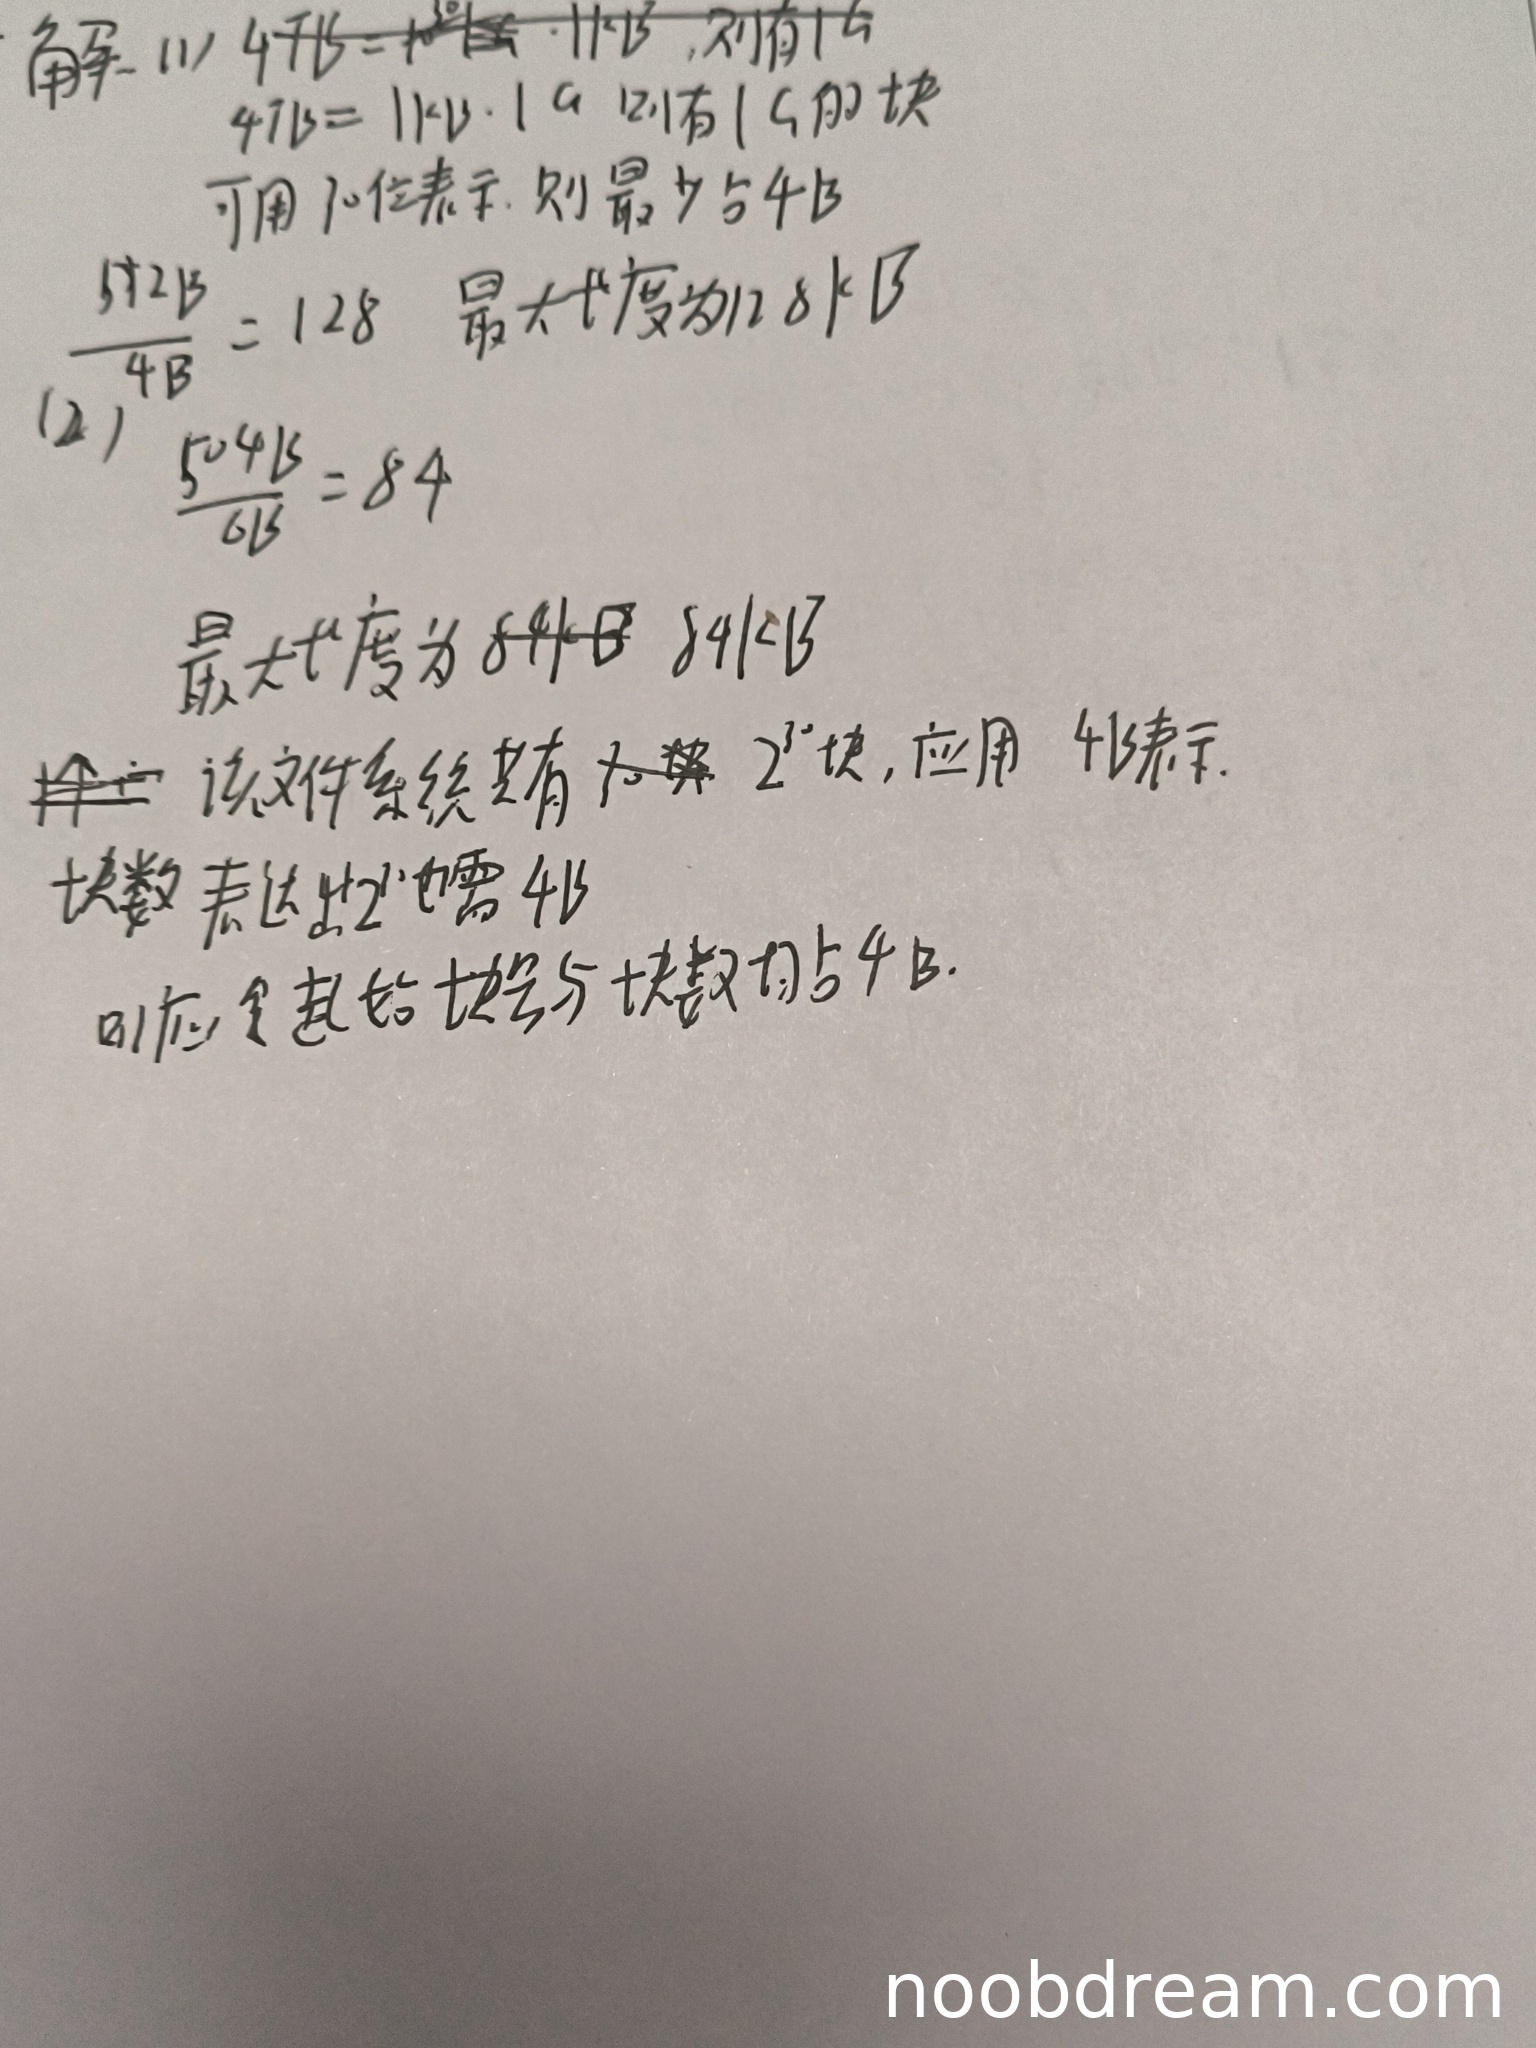 解 (1) 4TB = 2³⁰ · 1KB，则有1G
4TB = 1KB · 1G 则有1G的块
可用30位表示. 则最少占4B
512B / 4B = 128 最大长度为128KB
(2)
504B / 6B = 84
最大长度为 84KB 84KB
该文件系统共有 30块 2³⁰块, 应用 4B表示.
块数 表达出2³⁰也需 4B
则应令起始块号与块数均占4B.
noobdream.com